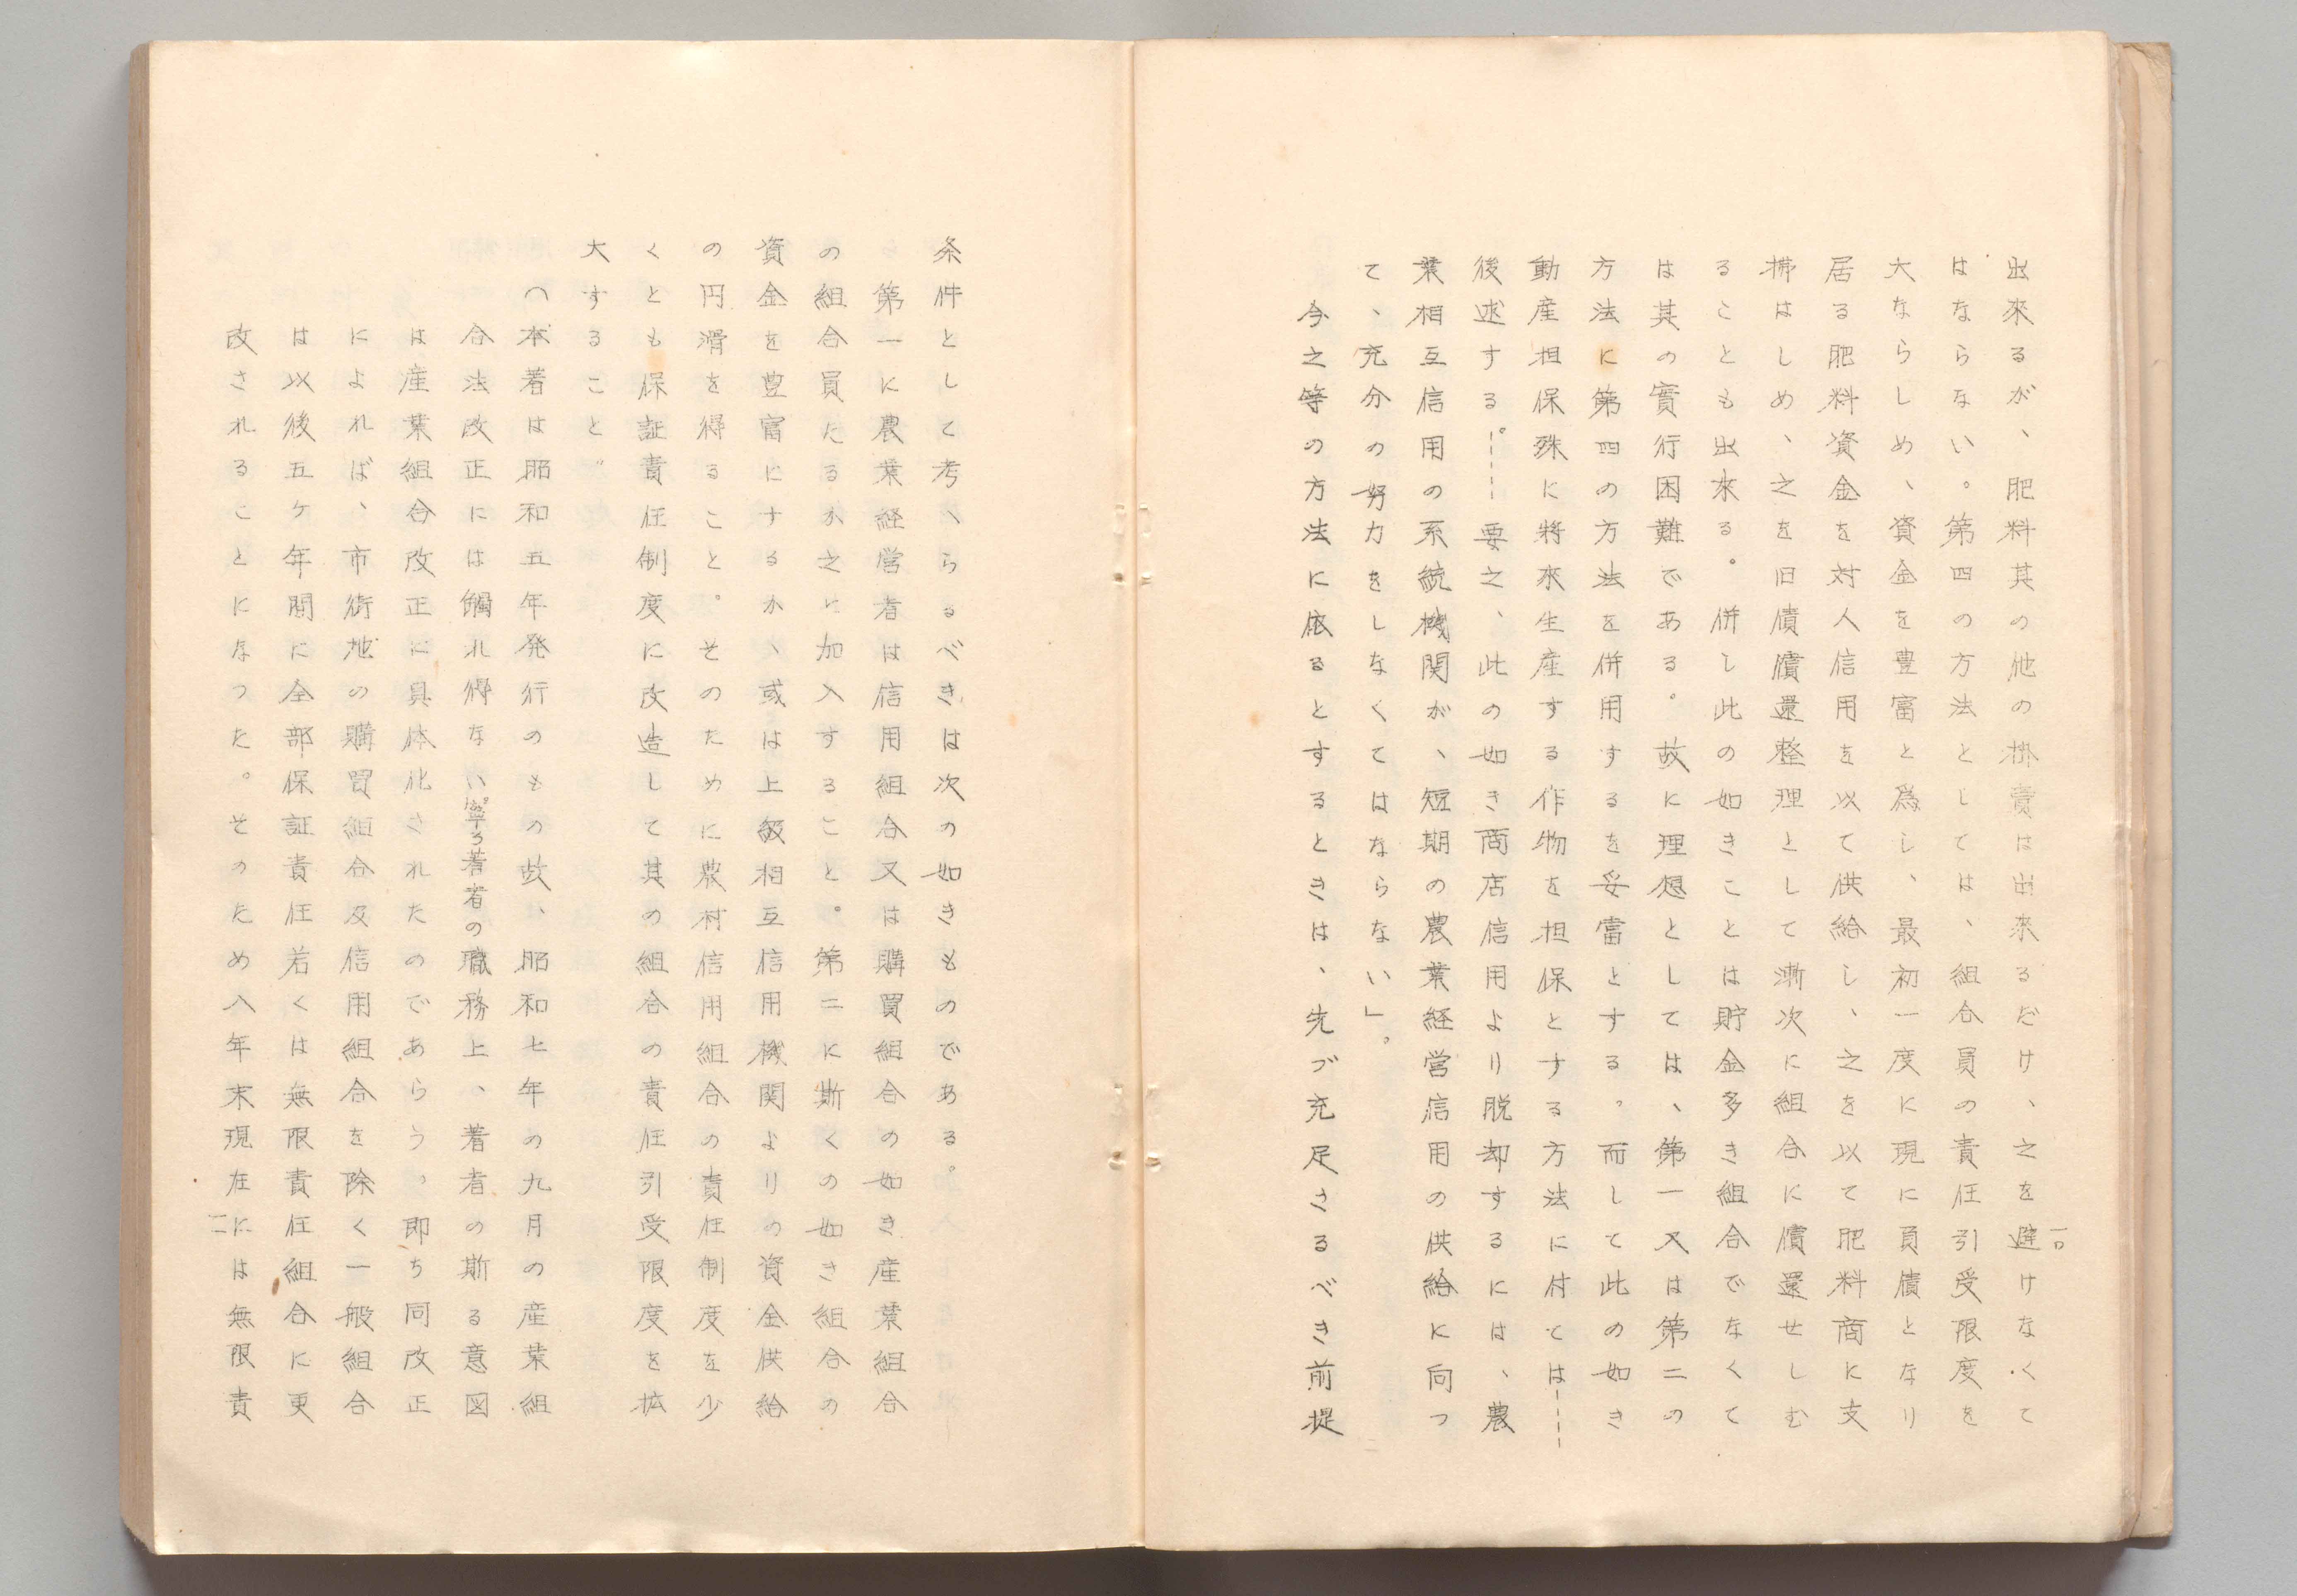 出來るが、肥料其の他の掛賣は出來るだけ、之を避けなくて
はならない。第四の方法としては、組合員の責任引受限度を
大ならしめ、資金を豊富と爲し、最初一度に現に負債となり
居る肥料資金を対人信用を以て供給し、之を以て肥料商に支
拂はしめ、之を旧債償還整理として漸次に組合に償還せしむ
ることも出來る。併し此の如きことは貯金多き組合でなくて
は其の實行困難である。故に理想としては、第一又は第二の
方法に第四の方法を併用するを妥當とする。而して此の如き
動産担保殊に將來生産する作物を担保とする方法に付ては----
後述する。----要之、此の如き商店信用より脱却するには、農
業相互信用の系統機関が、短期の農業経営信用の供給に向つ
て、充分の努力をしなくてはならない」。
今之等の方法に依るとするときは、先づ充足さるべき前提
一〇
条件として考へらるべきは次の如きものである。
第一に農業経営者は信用組合又は購買組合の如き産業組合
の組合員たるか之に加入すること。第二に斯くの如き組合の
資金を豊富にするか、或は上級相互信用機関よりの資金供給
の円滑を得ること。そのために農村信用組合の責任制度を少
くとも保証責任制度に改造して其の組合の責任引受限度を拡
大すること。
(本著は昭和五年発行のもの故、昭和七年の九月の産業組
合法改正には觸れ得ない。寧ろ著者の職務上、著者の斯る意図
は産業組合改正に具体化されたのであらう。即ち同改正
によれば、市街地の購買組合及信用組合を除く一般組合
は以後五ケ年間に全部保証責任若くは無限責任組合に更
改されることになつた。そのため八年末現在には無限責
一一